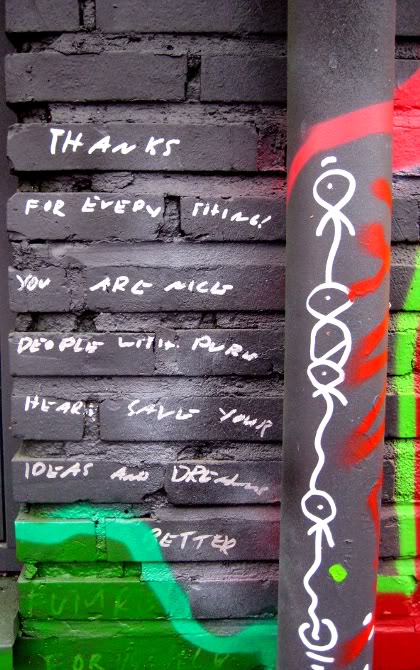 THANKS
FOR EVERY THING!
YOU ARE NICE
PEOPLE WITH PURE
HEART SAVE YOUR
IDEAS AND DREAMS
BETTER
FUTURE